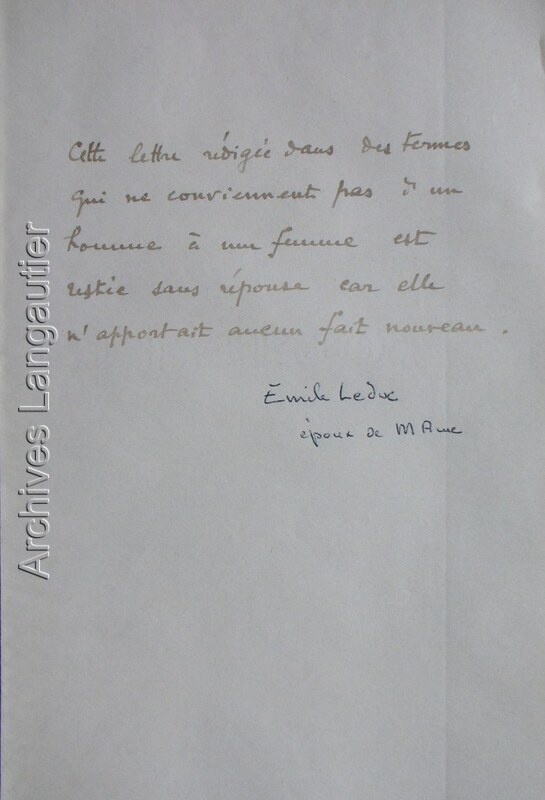 Cette lettre rédigée dans des termes
qui ne conviennent pas d'un
homme à une femme est
restée sans réponse car elle
n'apportait aucun fait nouveau.
Émile Leduc
époux de M Anne
Archives Langautier